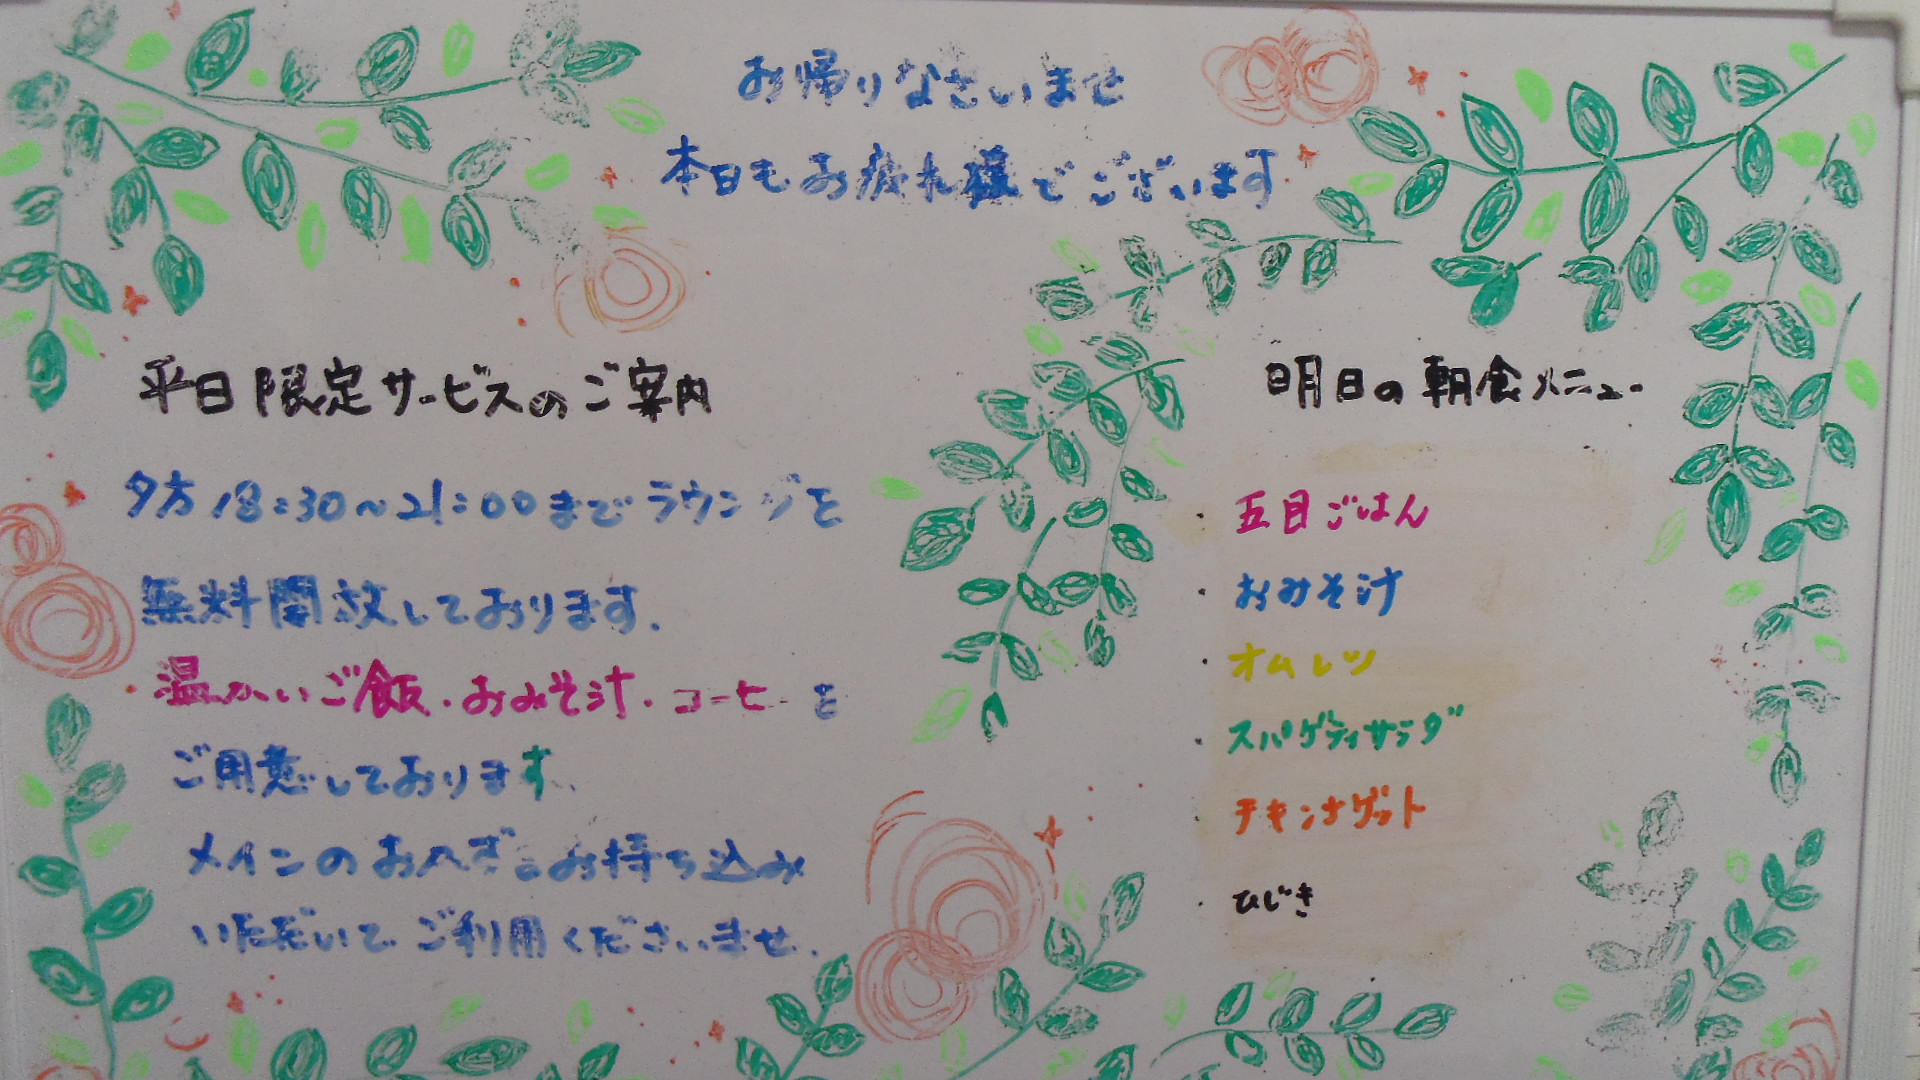 お帰りなさいませ
本日もお疲れ様でございます
平日限定サービスのご案内
夕方18:30~21:00までラウンジを
無料開放しております.
温かいご飯・おみそ汁・コーヒーを
ご用意しております、
メインのおかずをお持ち込み
いただいてご利用くださいませ.
明日の朝食メニュー
・五目ごはん
・おみそ汁
・オムレツ
・スパゲティサラダ
・チキンナゲット
・ひじき